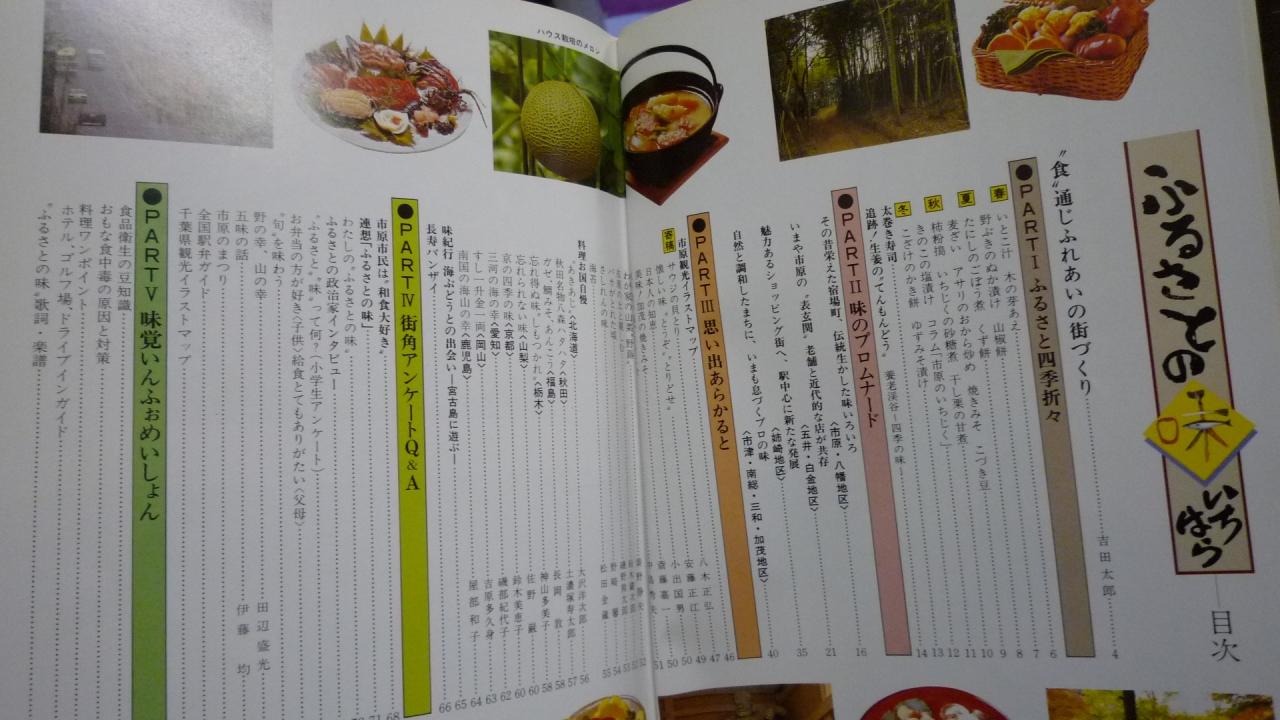 ふるさとの味いちはら
目次
“食”通じふれあいの街づくり 吉田太郎 4
●PARTⅠ ふるさと四季折々 6
春 いとこ汁 木の芽あえ 7
野ぶきのぬか漬け 山椒餅 8
夏 たにしのごぼう煮 くず餅 9
麦ざい アサリのおから炒め 焼きみそ こづき豆 10
秋 柿粉搗 いちじくの砂糖煮 干し栗の甘煮 11
きのこの塩漬け コラム「市原のいちじく」 12
冬 こざけのかき餅 ゆずみそ漬け 13
太巻き寿司 14
追跡!生姜のてんもんどう 養老渓谷―四季の味―
●PARTⅡ 味のプロムナード 16
その昔栄えた宿場町 伝統生かした味いろいろ 〈市原・八幡地区〉 21
いまや市原の“表玄関” 老舗と近代的な店が共存 〈五井・白金地区〉 35
魅力あるショッピング街へ、駅中心に新たな発展 〈姉崎地区〉 40
自然と調和したまちに、いまも息づくプロの味 〈市津・南総・三和・加茂地区〉
●PARTⅢ 思い出あらかると 46
市原観光イラストマップ 47
寄稿 サウシの貝とり 八木正弘 49
懐しい味“とっぞ、とりどせ” 安藤正江 50
日本人の知恵 小出国男 50
美味!加茂の焼きみそ 斎藤嘉一 51
海苔 松田金蔵 55
料理お国自慢 56
“あきあじ”〈北海道〉 大沢洋太郎 57
秋田名物八森ハタハタ〈秋田〉 土濃塚寿太郎 58
ガゼ、鯛みそ、あんこ〈福島〉 長岡敦 58
忘れ得ぬ味、しもつかれ〈栃木〉 神山多美子 60
忘れられない味〈山梨〉 佐野巌 60
京の四季の味〈京都〉 鈴木美恵子 62
三河の海の幸〈愛知〉 磯部紀代子 63
すし一升金一両〈岡山〉 吉原多久身 64
南国の海山の幸〈鹿児島〉 屋部和子 65
味紀行 海ぶどうとの出会い―宮古島に遊ぶ― 66
長寿バンザイ
●PARTⅣ 街角アンケートQ&A 68
市原市民は“和食大好き” 71
連想「ふるさとの味」
わたしの“ふるさとの味”
ふるさとの政治家インタビュー
“ふるさと”“味”って何?(小学生アンケート)
お弁当の方が好き〈子供〉給食とてもありがたい〈父母〉
“旬”を味わう
野の幸、山の幸 田辺盛光
五味の話 伊藤均
市原のまつり
全国駅弁ガイド
千葉県観光イラストマップ
●PARTⅤ 味覚いんふぉめいしょん
食品衛生の豆知識
おもな食中毒の原因と対策
料理ワンポイント
ホテル、ゴルフ場、ドライブインガイド
“ふるさとの味”歌詞・楽譜
ハウス栽培のメロン